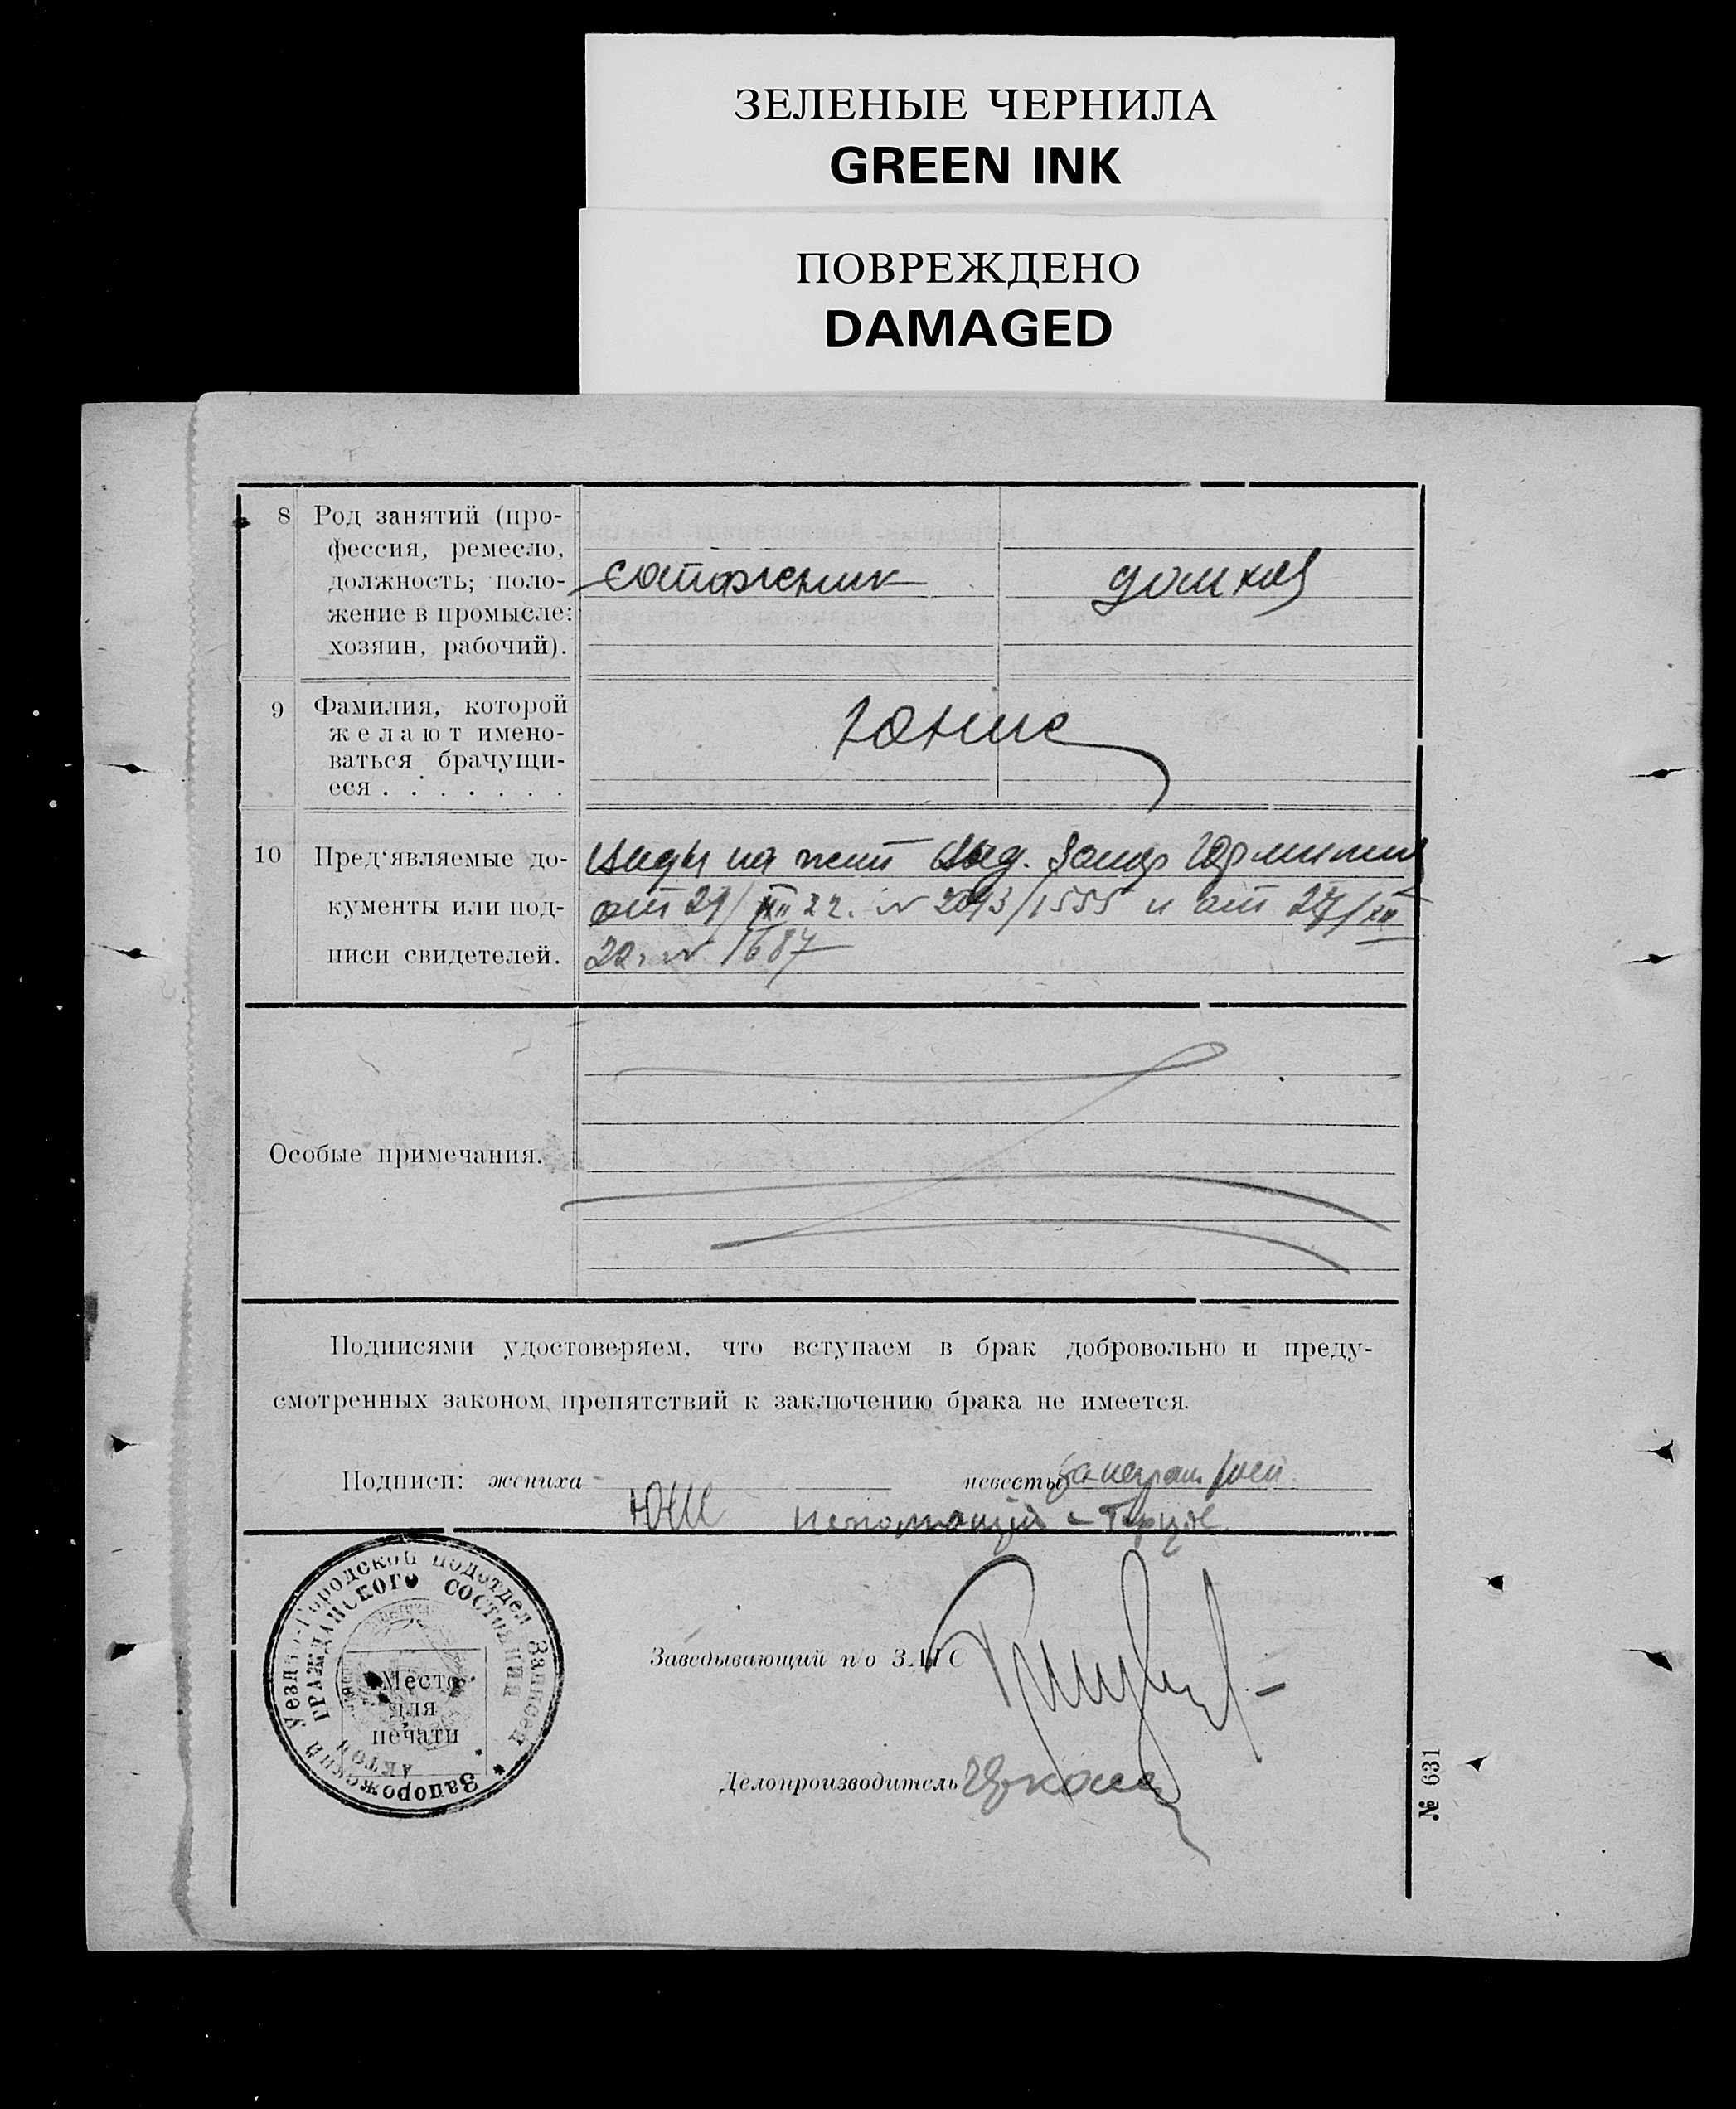 ЗЕЛЕНЫЕ ЧЕРНИЛА
GREEN INK
ПОВРЕЖДЕНО
DAMAGED
8 Род занятий (про-
фессия, ремесло,
должность; поло-
жение в промысле:
хозяин, рабочий).
сапожник домхоз
9 Фамилия, которой
желают имено-
ваться брачущи-
еся . . . . . . .
Юнис
10 Пред'являемые до-
кументы или под-
писи свидетелей.
виды на жит выд. Запор
от 27/XII 22. № 2043/1555 и от 27/XII
22. № 1687
Особые примечания.
Подписями удостоверяем, что вступаем в брак добровольно и преду-
смотренных законом препятствий к заключению брака не имеется.
Подписи: жениха невесты за неграм
Юни
Запорожский Уездно-Городской подотдел Записей
Актов гражданского состояния
Место
для
печати
Заведывающий п/о ЗАГС
Делопроизводитель
№ 631